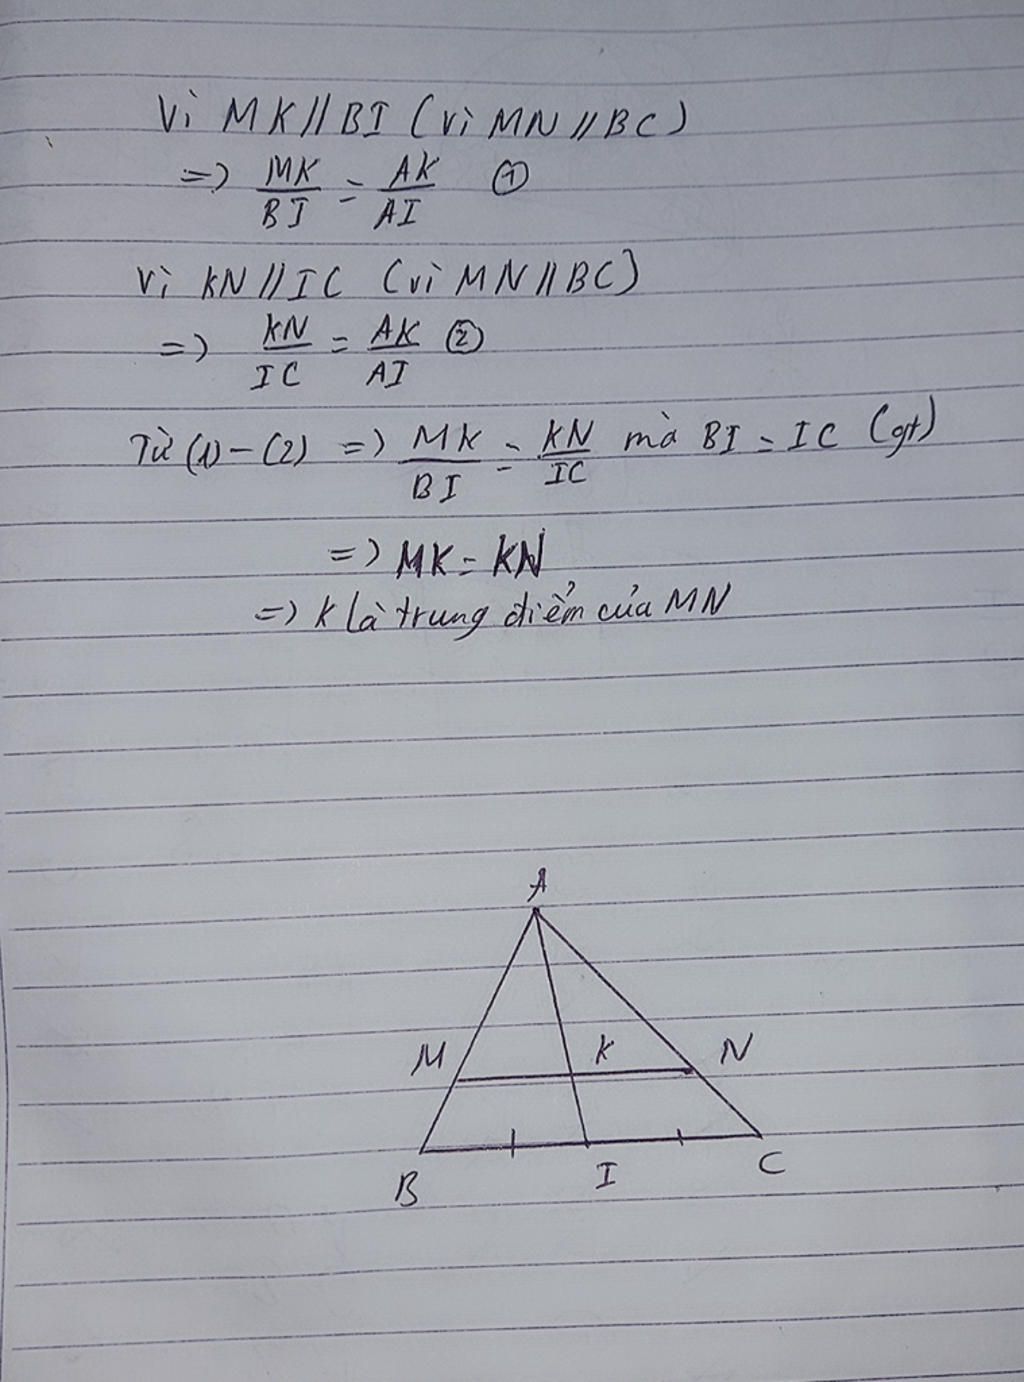 Vì MK // BI (vì MN // BC)
=> MK/BI = AK/AI ①
Vì KN // IC (vì MN // BC)
=> KN/IC = AK/AI ②
Từ (1) - (2) => MK/BI = KN/IC mà BI = IC (gt)
=> MK = KN
=> K là trung điểm của MN
A
M K N
B I C